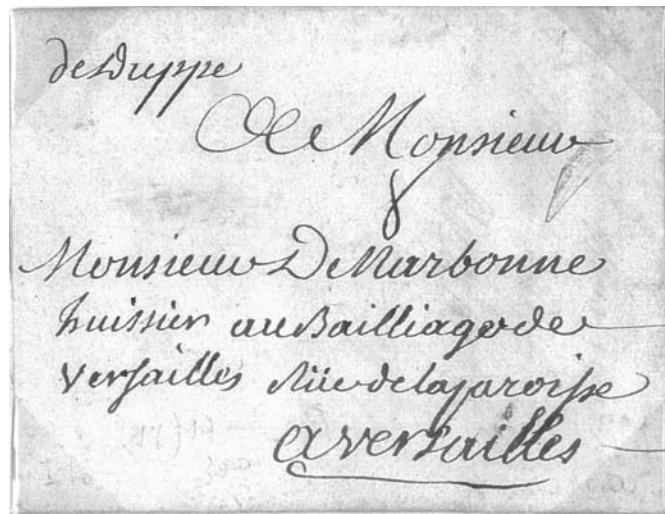 de Dieppe
A Monsieur
8
Monsieur De Narbonne
huissier au Bailliage de
Versailles Rüe de la paroisse
a versailles